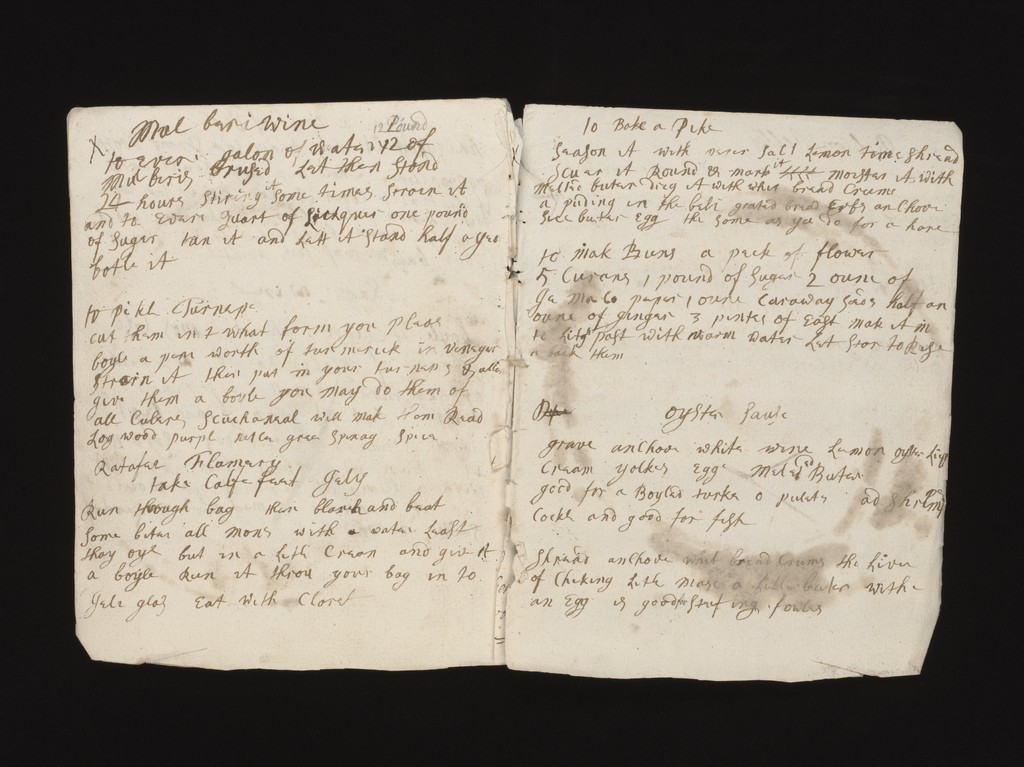 Mul beri Wine
12 Pound
X to Every galon of water 12 of
Mul biris brused Let them Stond
24 hours Stiring it Some times Stroin it
and to Evari quart of Lickquer one pound
of Sugar tun it and Lett it Stand half a yea
botle it
to Pikl Turneps
cut them in 2 what form you Pleas
boyle a peni worth of turmerick in veneger
Stroin it then put in your turneps &
give them a boyle you may do them of
all Culers Scuchaneal will mak them Read
Log wood purpl netls green Spinag
Ratafee Flamery
take Calfe feet Jely
Run through bag then blanch and beat
Some biter all mons with a water Least
thay oyl but in a Litle Cream and give it
a boyle Run it throu your bag in to
Jele glas Eat With Claret
to Bake a Pike
Season it with Salt Lemon time Shread
Scuer it Round & mark it moisten it With
melted buter dreg it with whit bread Crums
a puding in the beli grated bread Erbs anchove
Suet buter Egg the Same as you do for a hare
to mak Buns a peck of flower
5 Curans 1 pound of Sugar 2 ounc of
Ja Ma Co peper 1 ounc Caraway Seeds half an
ounc of ginger 3 pintes of East mak it in
to past with warm water Let Stor to Rise
them
oyster Sause
grave anchove white wine Lemon oyster
Cream yolkes Eggs Melted Buter
good for a Boyled turke o pulets ad Shrimp
Cockl and good for fish
Shread anchove whit bread Crums the Liver
of Cheking Litle mase a Litle buter with
an Egg is good for Stuf ing fowles